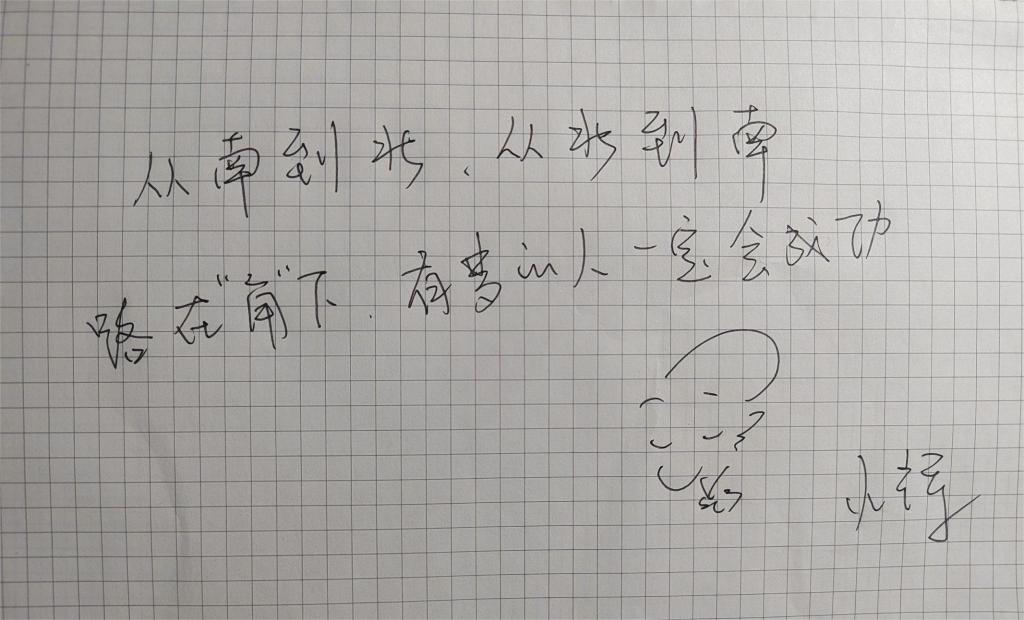 从南到北，从北到南
路在“角”下，有梦的人一定会成功